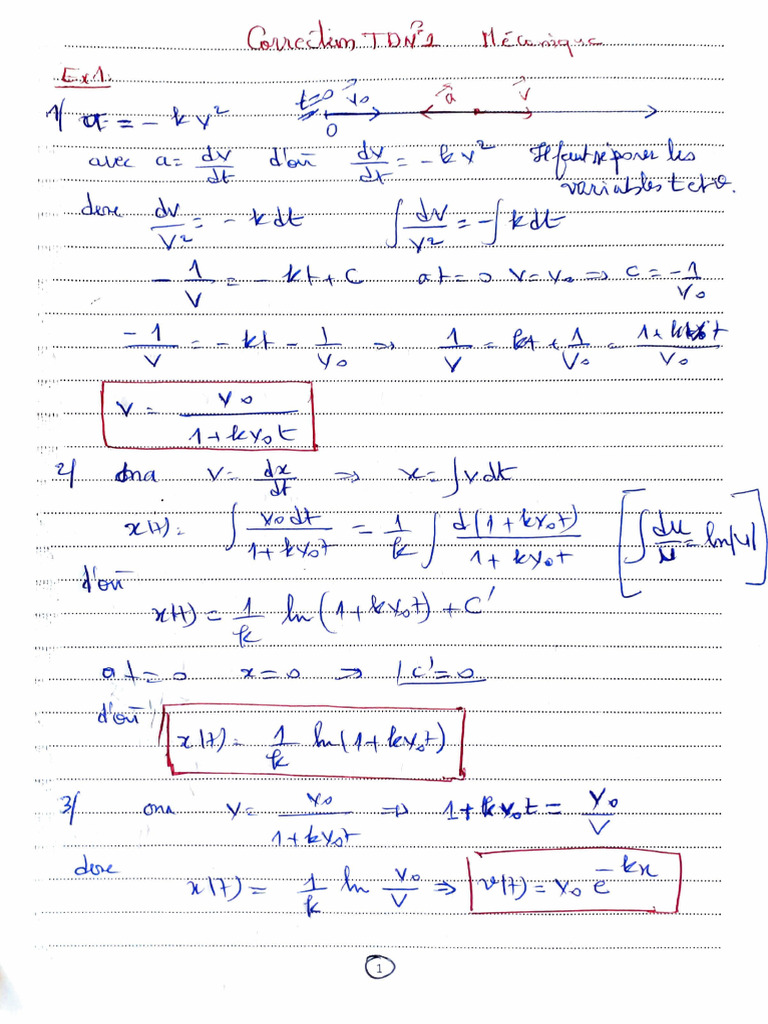 Correction TD N°2 Mécanique
Ex1:
1/ a = - k v²
t=0 v₀ a v
O
avec a = dv/dt d'où dv/dt = - k v² Il faut séparer les
variables t et v.
donc dv/v² = - k dt ∫ dv/v² = - ∫ k dt
- 1/v = - kt + C at = 0 v = v₀ ⇒ C = - 1/v₀
- 1/v = - kt - 1/v₀ ⇒ 1/v = kt + 1/v₀ = (1 + kv₀t)/v₀
v = v₀/(1 + kv₀t)
2/ Ona v = dx/dt ⇒ x = ∫ v dt
x(t) = ∫ v₀dt/(1 + kv₀t) = 1/k ∫ d(1 + kv₀t)/(1 + kv₀t) [∫ du/u = ln|u|]
d'où
x(t) = 1/k ln(1 + kv₀t) + C'
at = 0 x = 0 ⇒ C' = 0
d'où
x(t) = 1/k ln(1 + kv₀t)
3/ ona v = v₀/(1 + kv₀t) ⇒ 1 + kv₀t = v₀/v
donc x(t) = 1/k ln v₀/v ⇒ v(t) = v₀ e^(-kx)
1